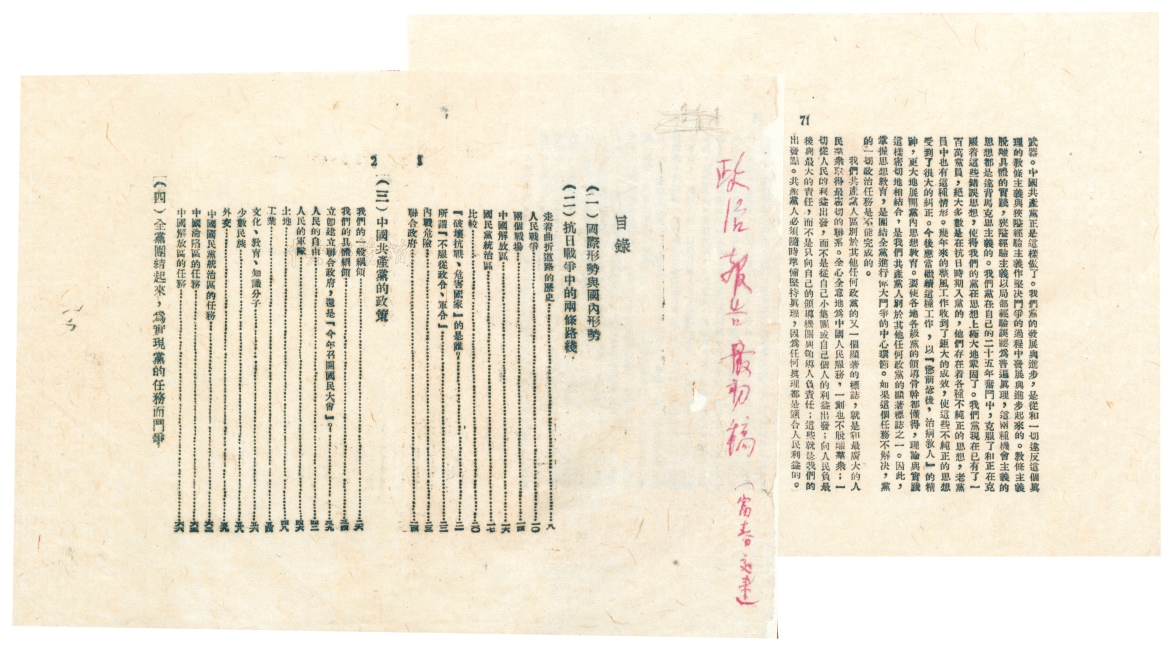 政治报告最初稿（富春文建
目錄
（一）國際形勢與國內形勢
（二）抗日戰爭中的兩條路綫
走着曲折道路的歷史 八
人民戰爭 一〇
兩個戰場 一四
中國解放區 一六
國民黨統治區 一七
比較 二〇
『破壞抗戰、危害國家』的是誰？ 二一
所謂『不服從政令、軍令』 二二
內戰危險 二三
聯合政府 二四
（三）中國共產黨的政策
我們的一般綱領 二六
我們的具體綱領
立卽建立聯合政府，還是『今年召開國民大會』？
人民的自由
人民的軍隊
土地
工業
文化、教育、知識分子
少數民族
外交
中國國民黨統治區的任務
中國淪陷區的任務
中國解放區的任務
（四）全黨團結起來，爲實現黨的任務而鬥爭
71
武器。中國共產黨正是這樣做了。我們黨的發展與進步，是從和一切違反這個眞
理的教條主義與狹隘經驗主義作堅决鬥爭的過程中發展與進步起來的。教條主義
脫離具體的實踐，狹隘經驗主義以局部經驗誤認爲普遍眞理，這兩種機會主義的
思想都是違背馬克思主義的。我們黨在自己的二十五年奮鬥中，克服了和正在克
服着這些錯誤思想，使得我們的黨在思想上極大地鞏固了。我們黨現在已有了一
百萬黨員，絕大多數是在抗日時期入黨的，他們存在着各種不純正的思想，老黨
員中也有這種情形。幾年來的整風工作收到了鉅大的成效，使這些不純正的思想
受到了很大的糾正。今後應當繼續這種工作，以『懲前毖後，治病救人』的精
神，更大地展開黨內思想教育。要使各地各級黨的領導骨幹都懂得，理論與實踐
這樣密切地相結合，是我們共產黨人別於其他任何政黨的顯著標誌之一。因此，
掌握思想教育，是團結全黨進行偉大鬥爭的中心環節。如果這個任務不解决，黨
的一切政治任務是不能完成的。
我們共產黨人區別於其他任何政黨的又一個顯著的標誌，就是和最廣大的人
民羣衆取得最密切的聯系。全心全意地爲中國人民服務，一刻也不脫離羣衆；一
切從人民的利益出發，而不是從自己小集團或自己個人的利益出發；向人民負最
後與最大的責任，而不是只向自己的領導機關與領導人負責任；這些就是我們的
出發點。共產黨人必須隨時準備堅持眞理，因爲任何眞理都是適合人民利益的。